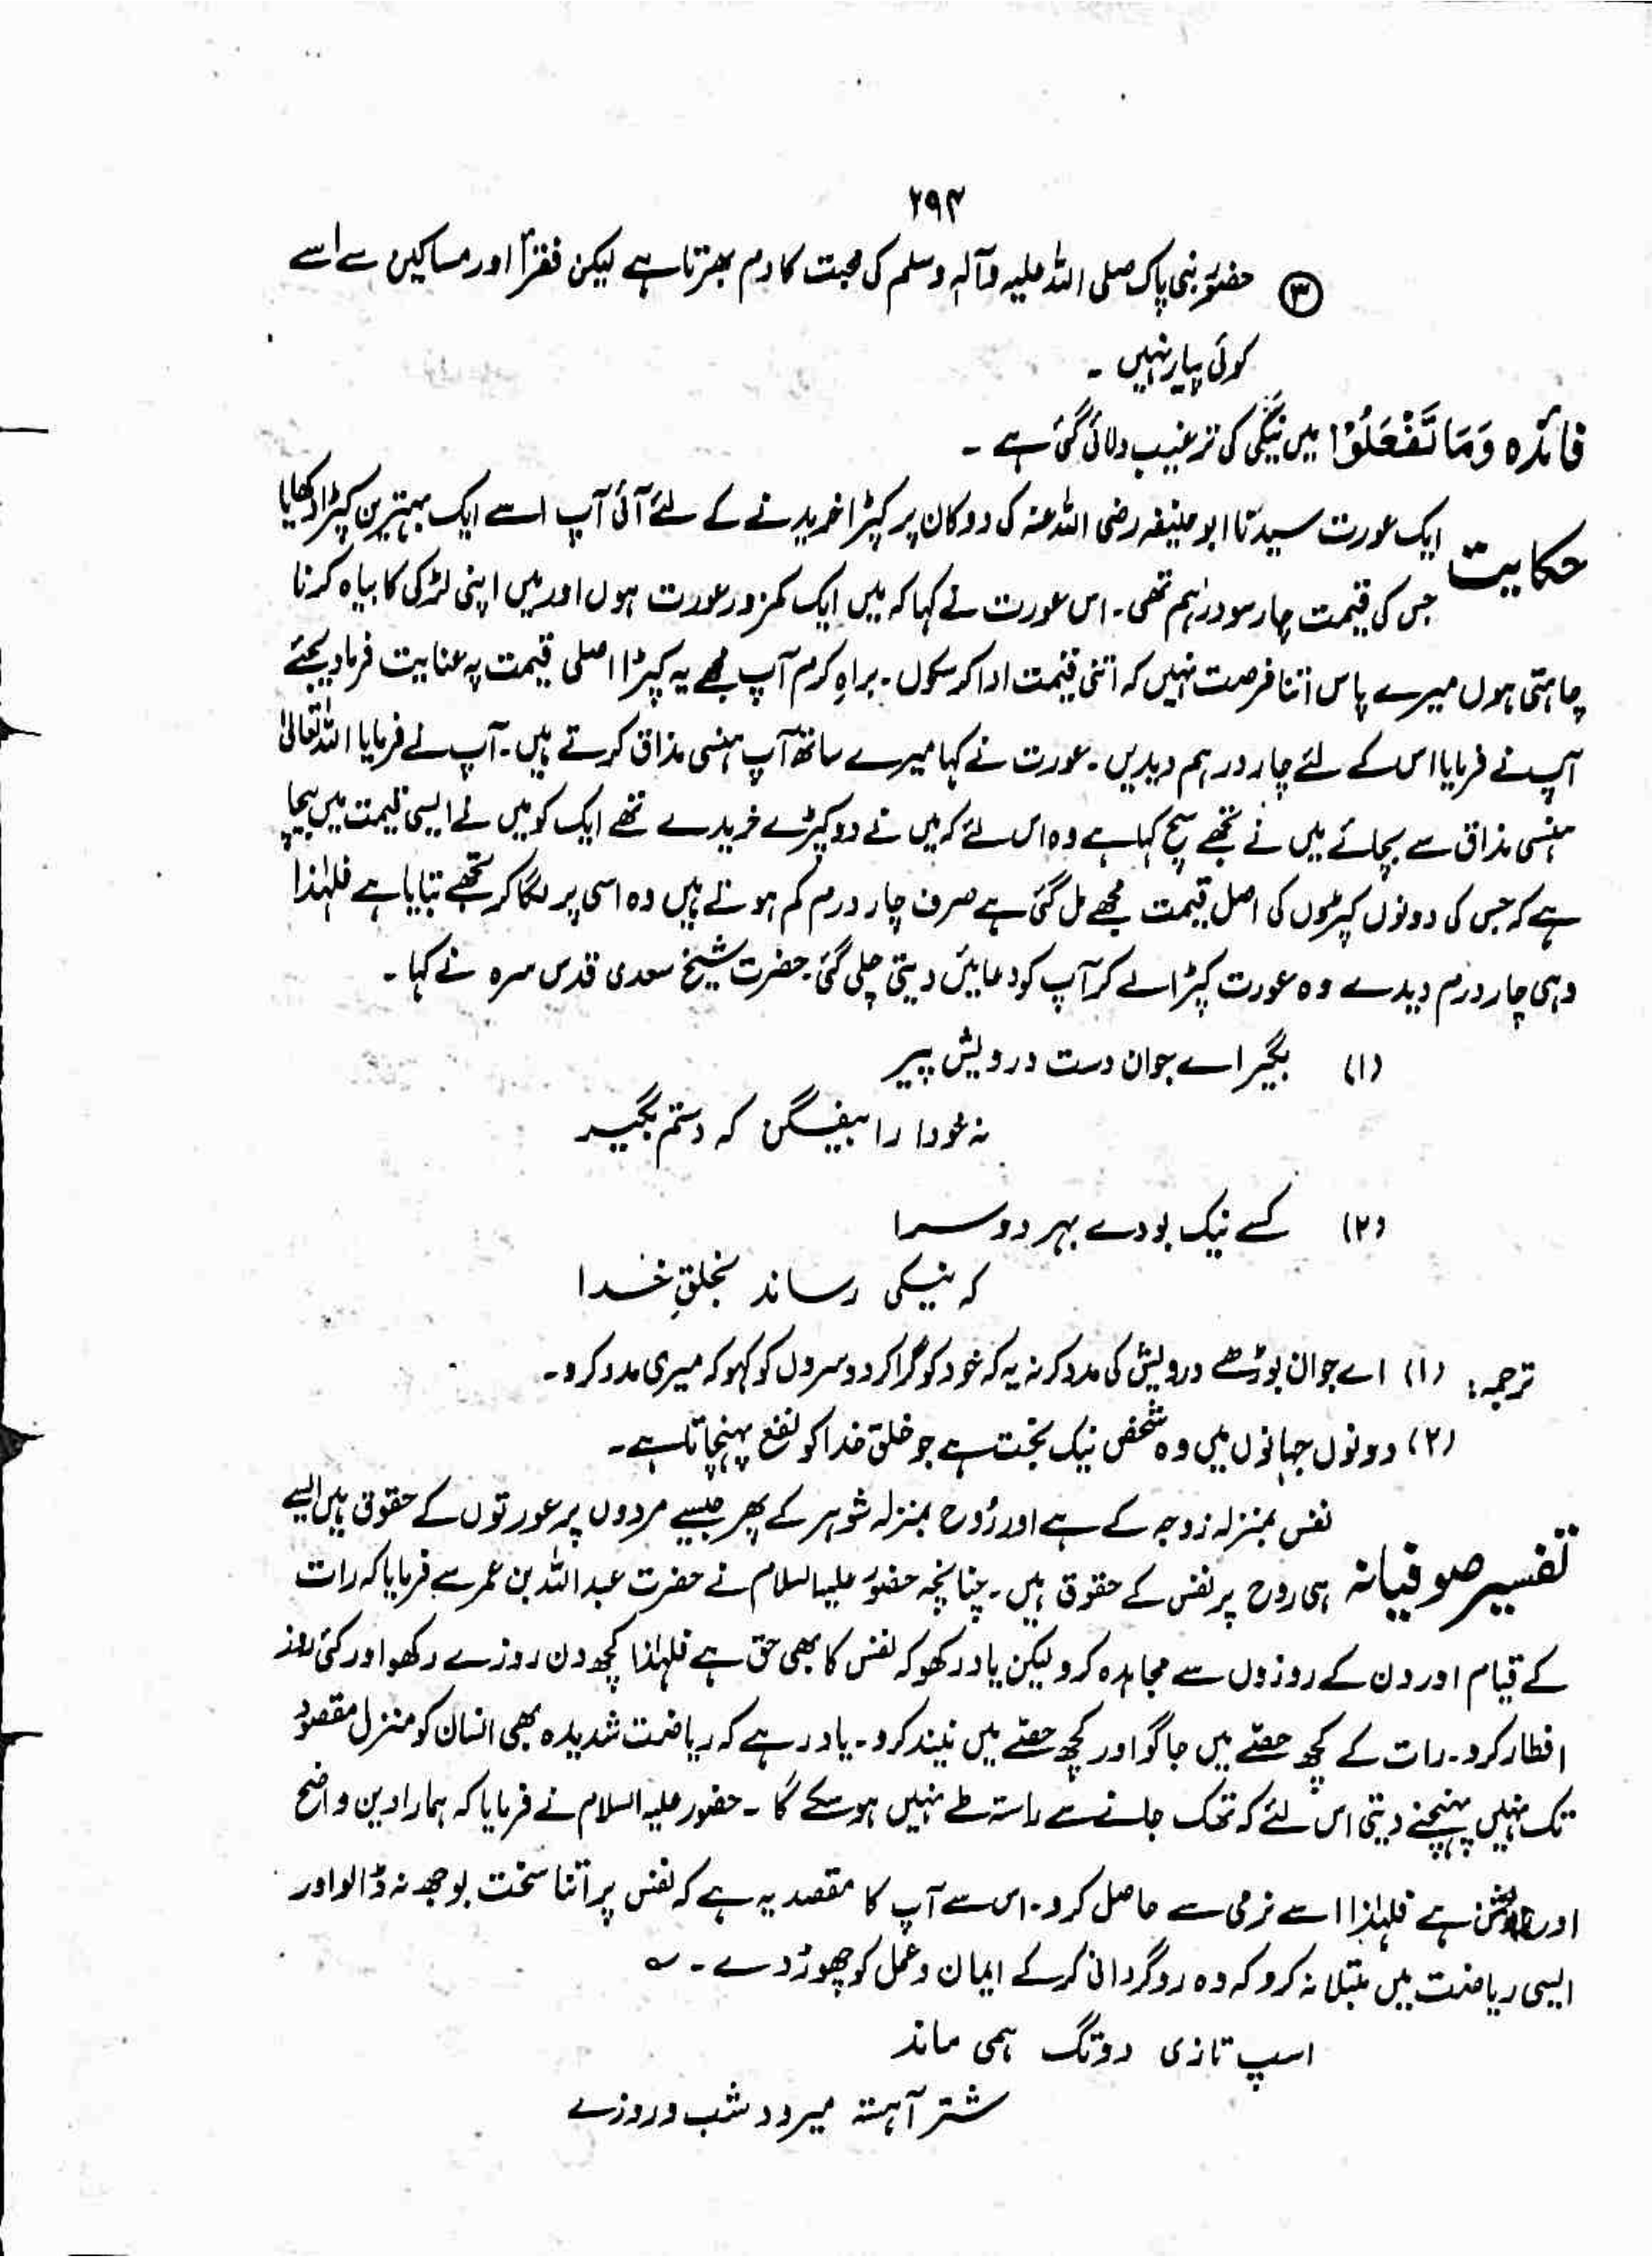 ۲۹۴
③ حضور نبی پاک صلی اللہ علیہ وآلہ وسلم کی محبت کا دم بھرتا ہے لیکن فقرأ اور مساکین سے اسے
کوئی پیار نہیں ۔
فائدہ وَمَا تَفْعَلُوْا میں نیکی کی ترغیب دلائی گئی ہے ۔
حکایت ایک عورت سیدنا ابو حنیفہ رضی اللہ عنہ کی دوکان پر کپڑا خریدنے کے لئے آئی آپ اسے ایک بہترین کپڑا دکھایا
جس کی قیمت چار سو درہم تھی۔ اس عورت نے کہا کہ میں ایک کمزور عورت ہوں اور میں اپنی لڑکی کا بیاہ کرنا
چاہتی ہوں میرے پاس اتنا فرصت نہیں کہ اتنی قیمت ادا کر سکوں۔ براہِ کرم آپ مجھے یہ کپڑا اصلی قیمت پہ عنایت فرما دیجئے
آپ نے فرمایا اس کے لئے چار درہم دیدیں۔ عورت نے کہا میرے ساتھ آپ ہنسی مذاق کرتے ہیں۔ آپ نے فرمایا اللہ تعالیٰ
ہنسی مذاق سے بچائے میں نے تجھے سچ کہا ہے وہ اس لئے کہ میں نے دو کپڑے خریدے تھے ایک کو میں نے ایسی قیمت میں بیچا
ہے کہ جس کی دونوں کپڑوں کی اصل قیمت مجھے مل گئی ہے صرف چار درم کم ہوتے ہیں وہ اسی پر لگا کر تجھے بتایا ہے فلہٰذا
وہی چار درم دیدے وہ عورت کپڑا لے کر آپ کو دعائیں دیتی چلی گئی۔ حضرت شیخ سعدی قدس سرہ نے کہا ۔
(۱) بگیر اے جوان دست درویش پیر
نہ خودا را بیفگن کہ دستم بگیر
(۲) کسے نیک بودے بہر دو سرا
کہ نیکی رساند بخلقِ خدا
ترجمہ: (۱) اے جوان بوڑھے درویش کی مدد کر نہ یہ کہ خود کو گرا کر دوسروں کو کہو کہ میری مدد کرو۔
(۲) دونوں جہانوں میں وہ شخص نیک بخت ہے جو خلق خدا کو نفع پہنچاتا ہے۔
نفس بمنزلہ زوجہ کے ہے اور رُوح بمنزلہ شوہر کے پھر جیسے مردوں پر عورتوں کے حقوق ہیں ایسے
تفسیر صوفیانہ ہی روح پر نفس کے حقوق ہیں۔ چنانچہ حضور علیہ السلام نے حضرت عبد اللہ بن عمر سے فرمایا کہ رات
کے قیام اور دن کے روزوں سے مجاہدہ کرو لیکن یاد رکھو کہ نفس کا بھی حق ہے فلہٰذا کچھ دن روزے رکھو اور کئی روز
افطار کرو۔ رات کے کچھ حصّے میں جاگو اور کچھ حصّے میں نیند کرو۔ یاد رہے کہ ریاضت شدیدہ بھی انسان کو منزل مقصود
تک نہیں پہنچنے دیتی اس لئے کہ تھک جانے سے راستہ طے نہیں ہو سکے گا ۔ حضور علیہ السلام نے فرمایا کہ ہمارا دین واضح
اور روشن ہے فلہٰذا اسے نرمی سے حاصل کرو۔ اس سے آپ کا مقصد یہ ہے کہ نفس پر اتنا سخت بوجھ نہ ڈالو اور
ایسی ریاضت میں مبتلا نہ کرو کہ وہ روگردانی کرکے ایمان و عمل کو چھوڑ دے ۔ ؎
اسپ تازی دوتگ ہمی ماند
شتر آہستہ میرود شب و روزے